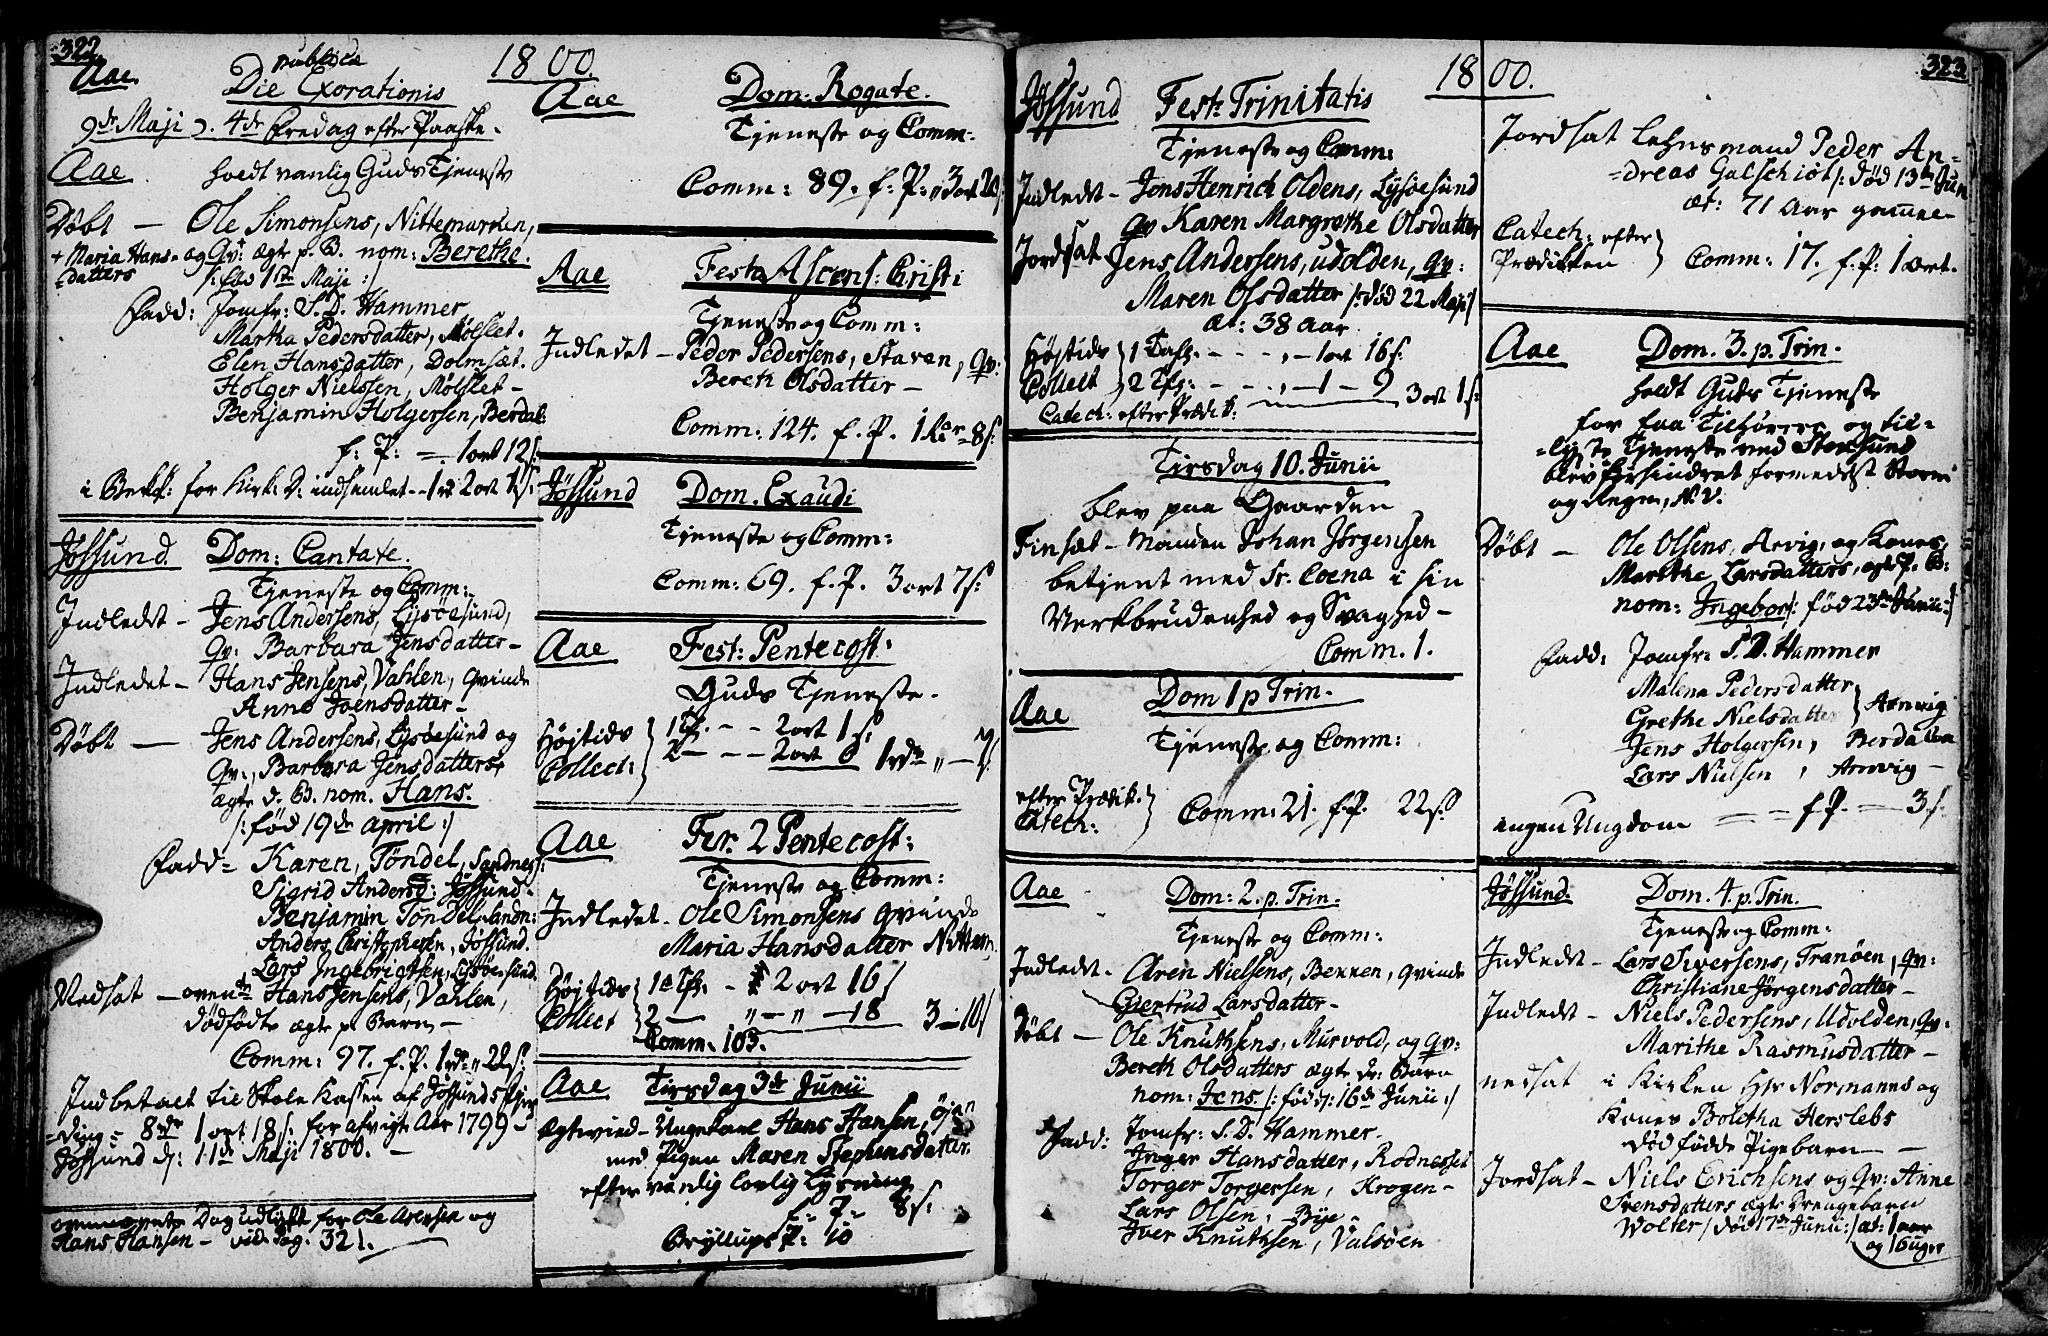 322.
1800.
Aae. Die publica Exorationis
9de Maji ɔ. 4de Fredag efter Paaske.
Aae holdt vanlig Guds Tjeneste
Døbt — Ole Simonsens, Nittemarken,
+ Maria Hans- og Qv: ægte p. B. nom: Berethe.
datters /: fød 1ste Maji :/
Fadd: Jomfr: S. D. Hammer
Martha Pedersdatter, Mølslet.
Elen Hansdatter, Dolmsæt.
Holger Nielsen, Mølslet —
Benjamin Holgersen, Berdal:
f: P: = 1 ort 12 s:
Jøssund. Dom: Cantate.
Tjeneste og Comm:
Indledt — Jens Andersens, Lysøesund,
Qv: Barbara Jensdatter —
Indledet — Hans Jensens, Vahlen, Qvinde
Anne Joensdatter —
Døbt — Jens Andersens, Lysøesund og
Qv:, Barbara Jensdatters
ægte d. B. nom. Hans.
/: fød 19de April :/
Fadd = Karen Tøndel, Sandnes:
Sigrid Andersd: Jøssund —
Benjamin Tøndel, Sandn:
Anders Christophersen, Jøssund.
Lars Ingebrigtsen, Lysøesund.
Nedsat — Hans Jensens, Vahlen,
dødfødte ægte p Barn —
Comm: 97. f. P. 1 rd „ 22 s:
Indbetalt til Skole Kassen af Jøssunds Tjen
8 rdr 1 ort 18 s: for afvigte Aar 1799 —
Jøssund d: 11de Maji 1800. —
Dag udlyst for Ole Aversen og
Hans Hansen — vid: Pag: 321.
Aae Dom: Rogate.
Tjeneste og Comm:
Comm: 89. f: P:
Aae Fest: Ascens: Christi
Tjeneste og Comm:
Indledet — Peder Pedersens, Staven, Qv:
Bereth Olsdatter —
Comm: 124. f. P. 8 s:
Jøssund Dom. Exaudi
Tjeneste og Comm:
Comm: 69. f. P. 3 ort 7 s:
Aae Fest: Pentecost:
Guds Tjeneste.
Højtids 1 Tfl. - - 2 ort 1 s:
Collect: 2 — - - 2 ort 6
Aae Fer. 2 Pentecost:
Tjeneste og Comm:
Indledet. Ole Simonsens Qvinde
Maria Hansdatter Nittem:
Højtids 1ste Tfl. - 2 ort 16 s
Collect 2 — „ — „ — 18 3 — 10 s
Comm. 103.
Aae Tirsdag 3de Junii
Ægtevied — Ungekarl Hans Hansen, Øjen
med Pigen Maren Stephensdatter
efter vanlig lovlig Lysning
f. P. 8 s:
Bryllups P: 10
323
1800.
Jøssund Fest: Trinitatis
Tjeneste og Comm:
Indledet — Jens Henrich Oldens, Lysøesund
Qv Karen Margrethe Olsdatter
Jordsat Jens Andersens, Udolden, Qv:
Maren Olsdatter /: død 22 Maji /
æt: 38 Aar
Højtids 1 Tafl. - - „ - 1 ort 16 s.
Collect 2 Tfl: - - „ - 1 - 9 3 ort 1 s:
Catech: efter Prædik:
Tirsdag 10. Junii
blev paa Gaarden
Finsæt — Manden Johan Jørgensen
betjent med Sr. Coena i sin
Verkbrudenhed og Svaghed —
Comm. 1.
Aae Dom 1 p Trin.
Tjeneste og Comm:
efter Prædik. Catech: Comm: 21. f. P. 22 s:
Aae Dom: 2. p. Trin.
Tjeneste og Comm:
Indledt — Aren Nielsens, Bennen, Qvinde
Gjertrud Larsdatter —
Døbt — Ole Knuthsens, Murvold, og Qv:
Bereth Olsdatters ægte dr: Barn
nom: Jens /: fød d: 16de Junii :/
Fadd: Jomfr: S. D. Hammer.
Inger Hansdatter, Rodnesset
Torger Torgersen, Krogen —
Lars Olsen, Bye —
Iver Knuthsen, Valsøen
Jordsat Lehnsmand Peder An-
dreas Galschiøt /: død 13de Jun
æt: 71 Aar gammel —
Catech: efter
Prædikken Comm: 17. f. P. 1 ort.
Aae Dom. 3. p. Trin.
holdt Guds Tjeneste
for faa Tilhørere og til-
lyste Tjeneste ved Storsund
blev forhindret formedelst Storm
og Regn, N. V.
Døbt — Ole Olsens, Arvig, og Kones,
Marithe Larsdatters, ægte P. B:
nom: Ingebor /: fød 23de Junii :/
Fadd: Jomfr: S. D. Hammer
Malena Pedersdatter
Grethe Nielsdatter Arnvig
Jens Holgersen, Berdalen
Lars Nielsen, Arnvig —
ingen Ungdom = = f P. — 3 s.
Jøssund. Dom. 4. p. Trin.
Tjeneste og Comm:
Indledt — Lars Siversens, Tranøen, Qv:
Christiane Jørgensdatter —
Indledt — Niels Pedersens, Udolden, Qv:
Marithe Rasmusdatter —
nedsat i Kirken Hr Normanns og
Kones Boletha Herslebs
død fødde Pigebarn —
Jordsat — Niels Erichsens og Qv: Anne
Svensdatters ægte Drengebarn
Wolter /: død 17de Junii :/ æt: 1 aar
og 16 uger